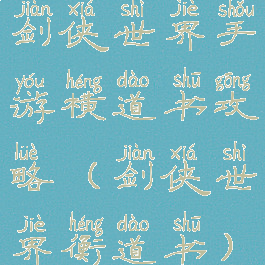 jiàn xiá shì jiè shǒu
剑侠世界手
yóu héng dào shū gōng
游横道书攻
lüè jiàn xiá shì
略（剑侠世
jiè héng dào shū
界衡道书）